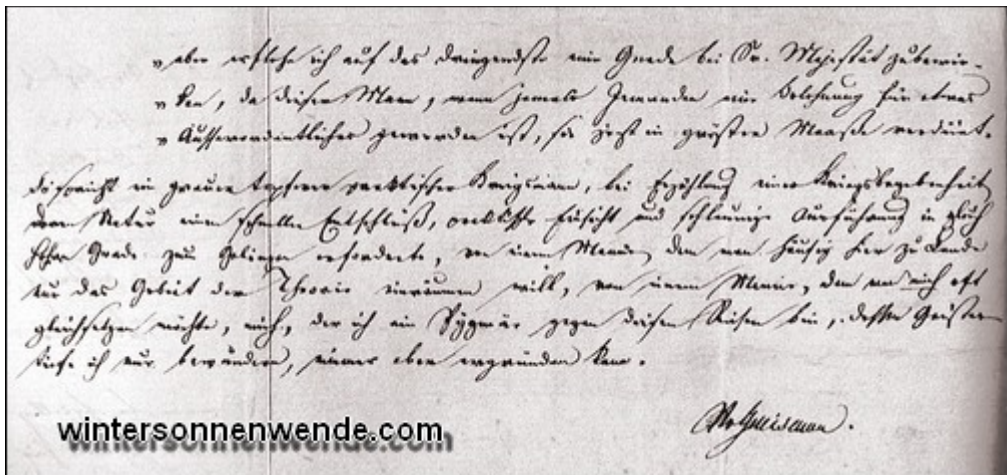 " aber erflehe ich auf das dringendste eine Gnade bei Sr. Majestät zu bewir-
" ken, da dieser Mann, wenn jemals Jemanden eine Belohnung für etwas
" Ausserordentliches geworden ist, sie jetzt in größtem Maaße verdient.
So spricht ein grauer tapferer praktischer Kriegsmann, bei Erzählung einer Kriegsbegebenheit
deren Natur einen schnellen Entschluß, Einsicht und schleunige Ausführung in gleich
hohem Grade zum Gelingen erforderte, von einem Manne, dem man häufig hier zu Lande
nur das Gebiet der Theorie einräumen will, von einem Manne, dem man mich oft
gleichsetzen möchte, mich, der ich ein Pygmäe gegen diesen Riesen bin, dessen Geistes-
tiefe ich nur bewundern, nimmer aber ergründen kann.
wintersonnenwende.com